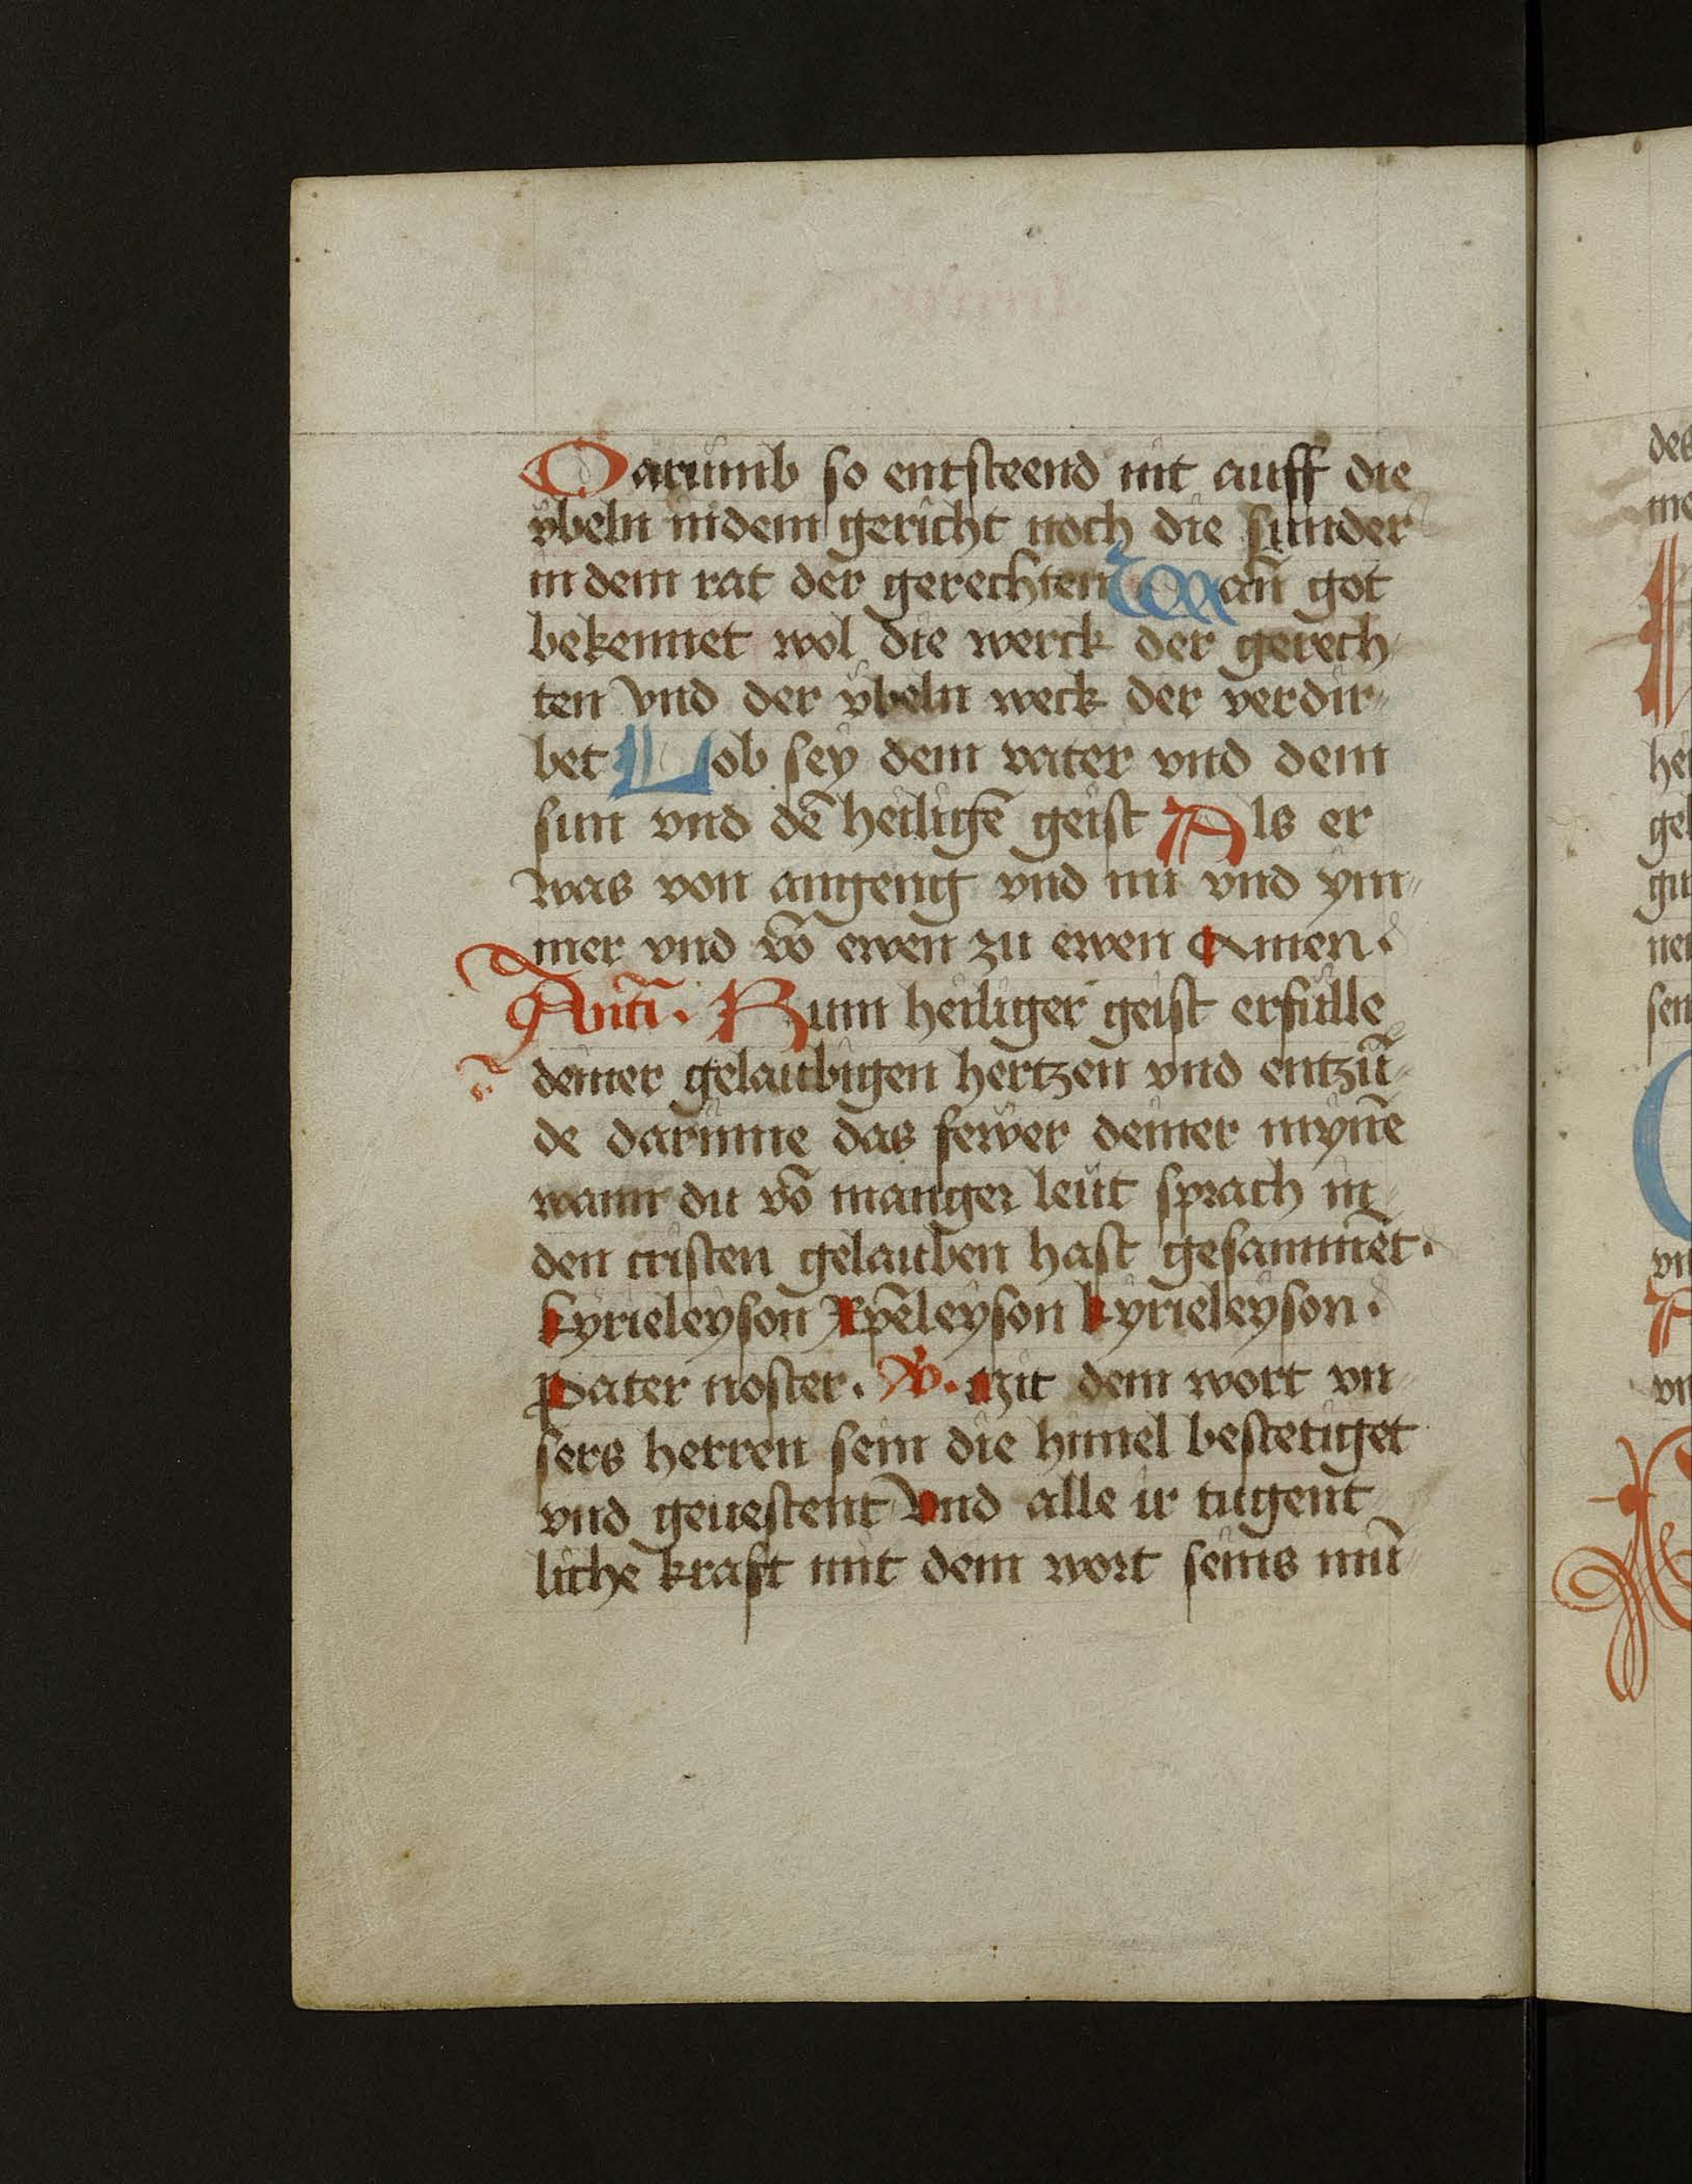 Darumb so entsteend nit auff die
ubeln indem gericht noch die sunder
in dem rat der gerechten Wañ got
bekennet wol die werck der gerech-
ten vnd der ÿbeln weck der verdir-
bet Lob sey dem vater vnd dem
sun vnd dē heiligē geist Als er
was von angeng vnd nu vnd ym-
mer vnd vō ewen zu ewen Amen.
Antī. Kum heiliger geist erfulle
deiner gelaubigen hertzen vnd entzū-
de darinne das fewer deiner mynē
wann du vō manger leüt sprach in
den cristen gelauben hast gesammet.
kyrieleyson Xpēleyson kyrieleyson.
Pater noster. V. Mit dem wort vn-
sers herren sein die himel bestetiget
vnd geuestent Vnd alle ir tugent
liche kraft mit dem wort seins mū-
des
me
hei
gel
gu
nen
sen
vn
vn